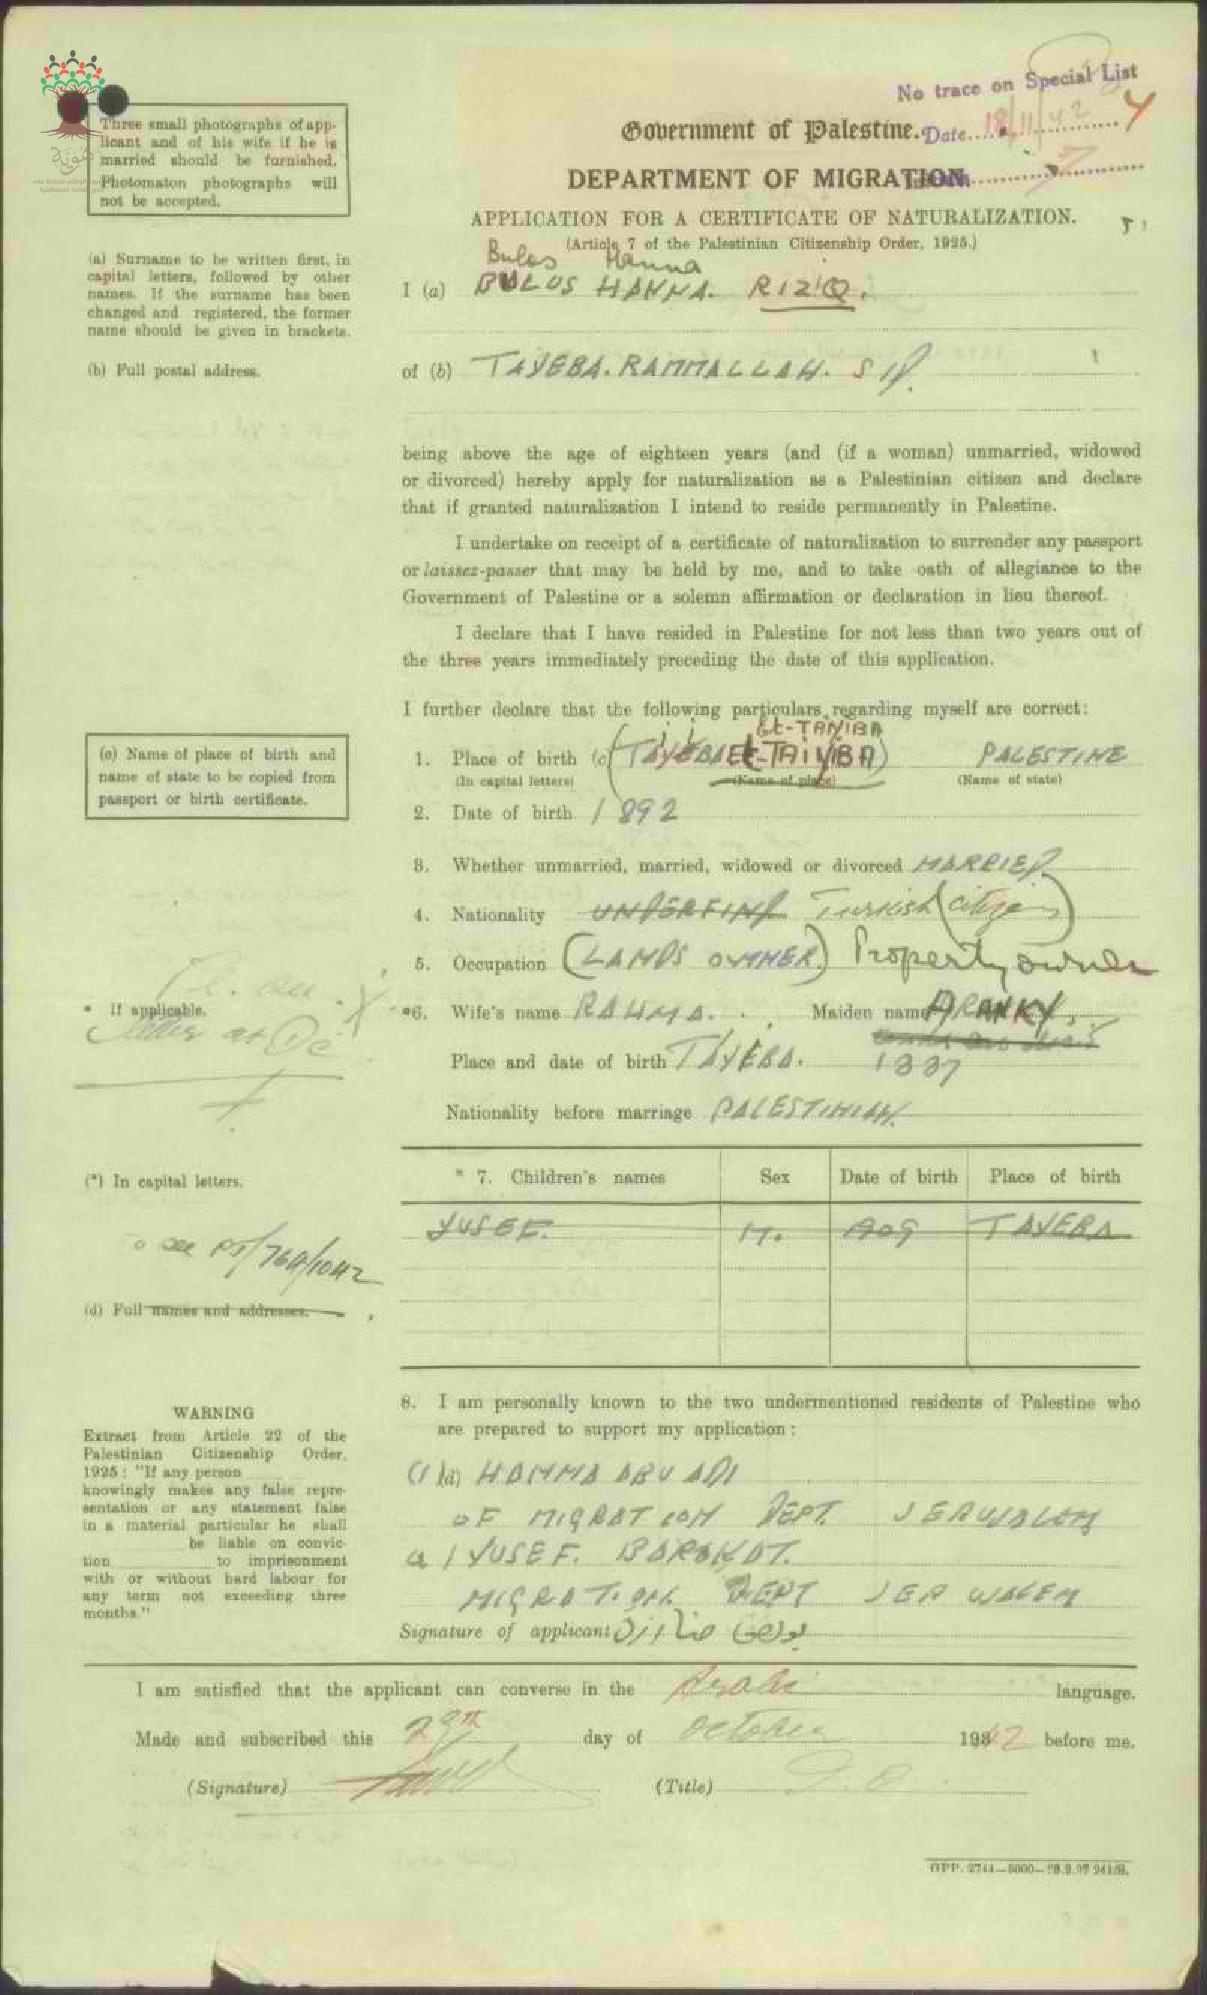 No trace on Special List
Government of Palestine.
Date 18/11/42
4
DEPARTMENT OF MIGRATION.
APPLICATION FOR A CERTIFICATE OF NATURALIZATION.
(Article 7 of the Palestinian Citizenship Order, 1925.)
هَوِيّة
Three small photographs of app-
licant and of his wife if he is
married should be furnished.
Photomaton photographs will
not be accepted.
(a) Surname to be written first, in
capital letters, followed by other
names. If the surname has been
changed and registered, the former
name should be given in brackets.
Bulos Hanna
I (a) BULOS HANNA. RIZQ.
(b) Full postal address.
of (b) TAYEBA. RAMMALLAH.
being above the age of eighteen years (and (if a woman) unmarried, widowed
or divorced) hereby apply for naturalization as a Palestinian citizen and declare
that if granted naturalization I intend to reside permanently in Palestine.
I undertake on receipt of a certificate of naturalization to surrender any passport
or laissez-passer that may be held by me, and to take oath of allegiance to the
Government of Palestine or a solemn affirmation or declaration in lieu thereof.
I declare that I have resided in Palestine for not less than two years out of
the three years immediately preceding the date of this application.
I further declare that the following particulars regarding myself are correct:
Et-TAIYIBA
(c) Name of place of birth and
name of state to be copied from
passport or birth certificate.
1. Place of birth (c) (TAYEBA Et-TAIYIBA) PALESTINE
(In capital letters) (Name of place) (Name of state)
2. Date of birth 1892
3. Whether unmarried, married, widowed or divorced MARRIED
4. Nationality UNDERFIND Turkish (citizen)
5. Occupation (LANDS OWNER) Property owner
* If applicable.
*6. Wife's name RAHMA. Maiden name ARANKY,
Place and date of birth TAYEBA. 1887
Nationality before marriage PALESTINIAN.
(*) In capital letters.
* 7. Children's names Sex Date of birth Place of birth
YUSEF. M. 1909 TAYEBA
(d) Full names and addresses.
8. I am personally known to the two undermentioned residents of Palestine who
are prepared to support my application:
(1 (d) HANNA ABU ADI
OF MIGRATION DEPT. JERUSALEM
2 ) YUSEF. BARAKAT.
MIGRATION. DEPT JERUSALEM
Signature of applicant بولص حنا رزق
WARNING
Extract from Article 22 of the
Palestinian Citizenship Order,
1925: "If any person
knowingly makes any false repre-
sentation or any statement false
in a material particular he shall
be liable on convic-
tion to imprisonment
with or without hard labour for
any term not exceeding three
months."
I am satisfied that the applicant can converse in the Arabic language.
Made and subscribed this 29th day of October 1942 before me.
(Signature) (Title)
GPP. 2744—5000—